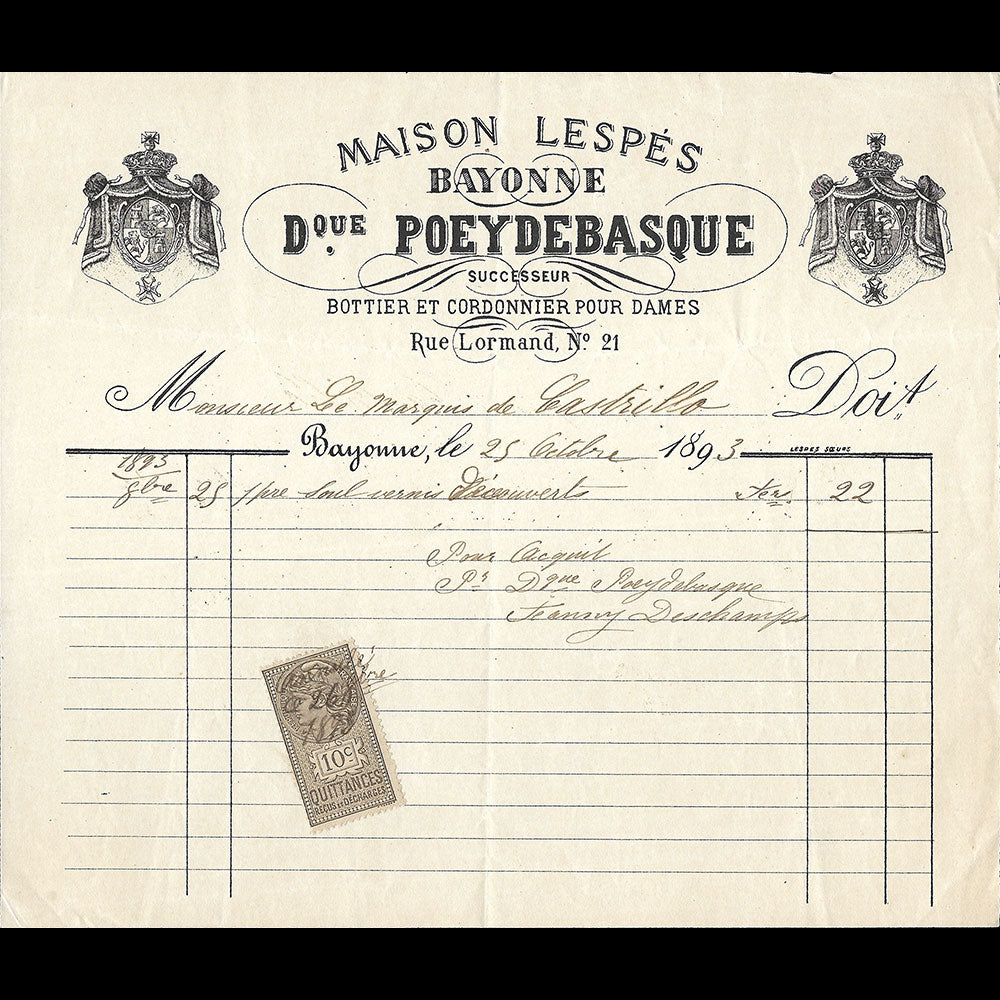 MAISON LESPÉS
BAYONNE
Dque POEYDEBASQUE
SUCCESSEUR
BOTTIER ET CORDONNIER POUR DAMES
Rue Lormand, No 21
Monsieur Le Marquis de Castrillo Doit
Bayonne, le 25 Octobre 1893
LESPES SŒURS
1893
8bre 25 1 pre Soul vernis découverts frs 22
Pour Acquit
Pr Dque Poeydebasque
Jeanny Deschamps
10c
QUITTANCES
REÇUS ET DÉCHARGES